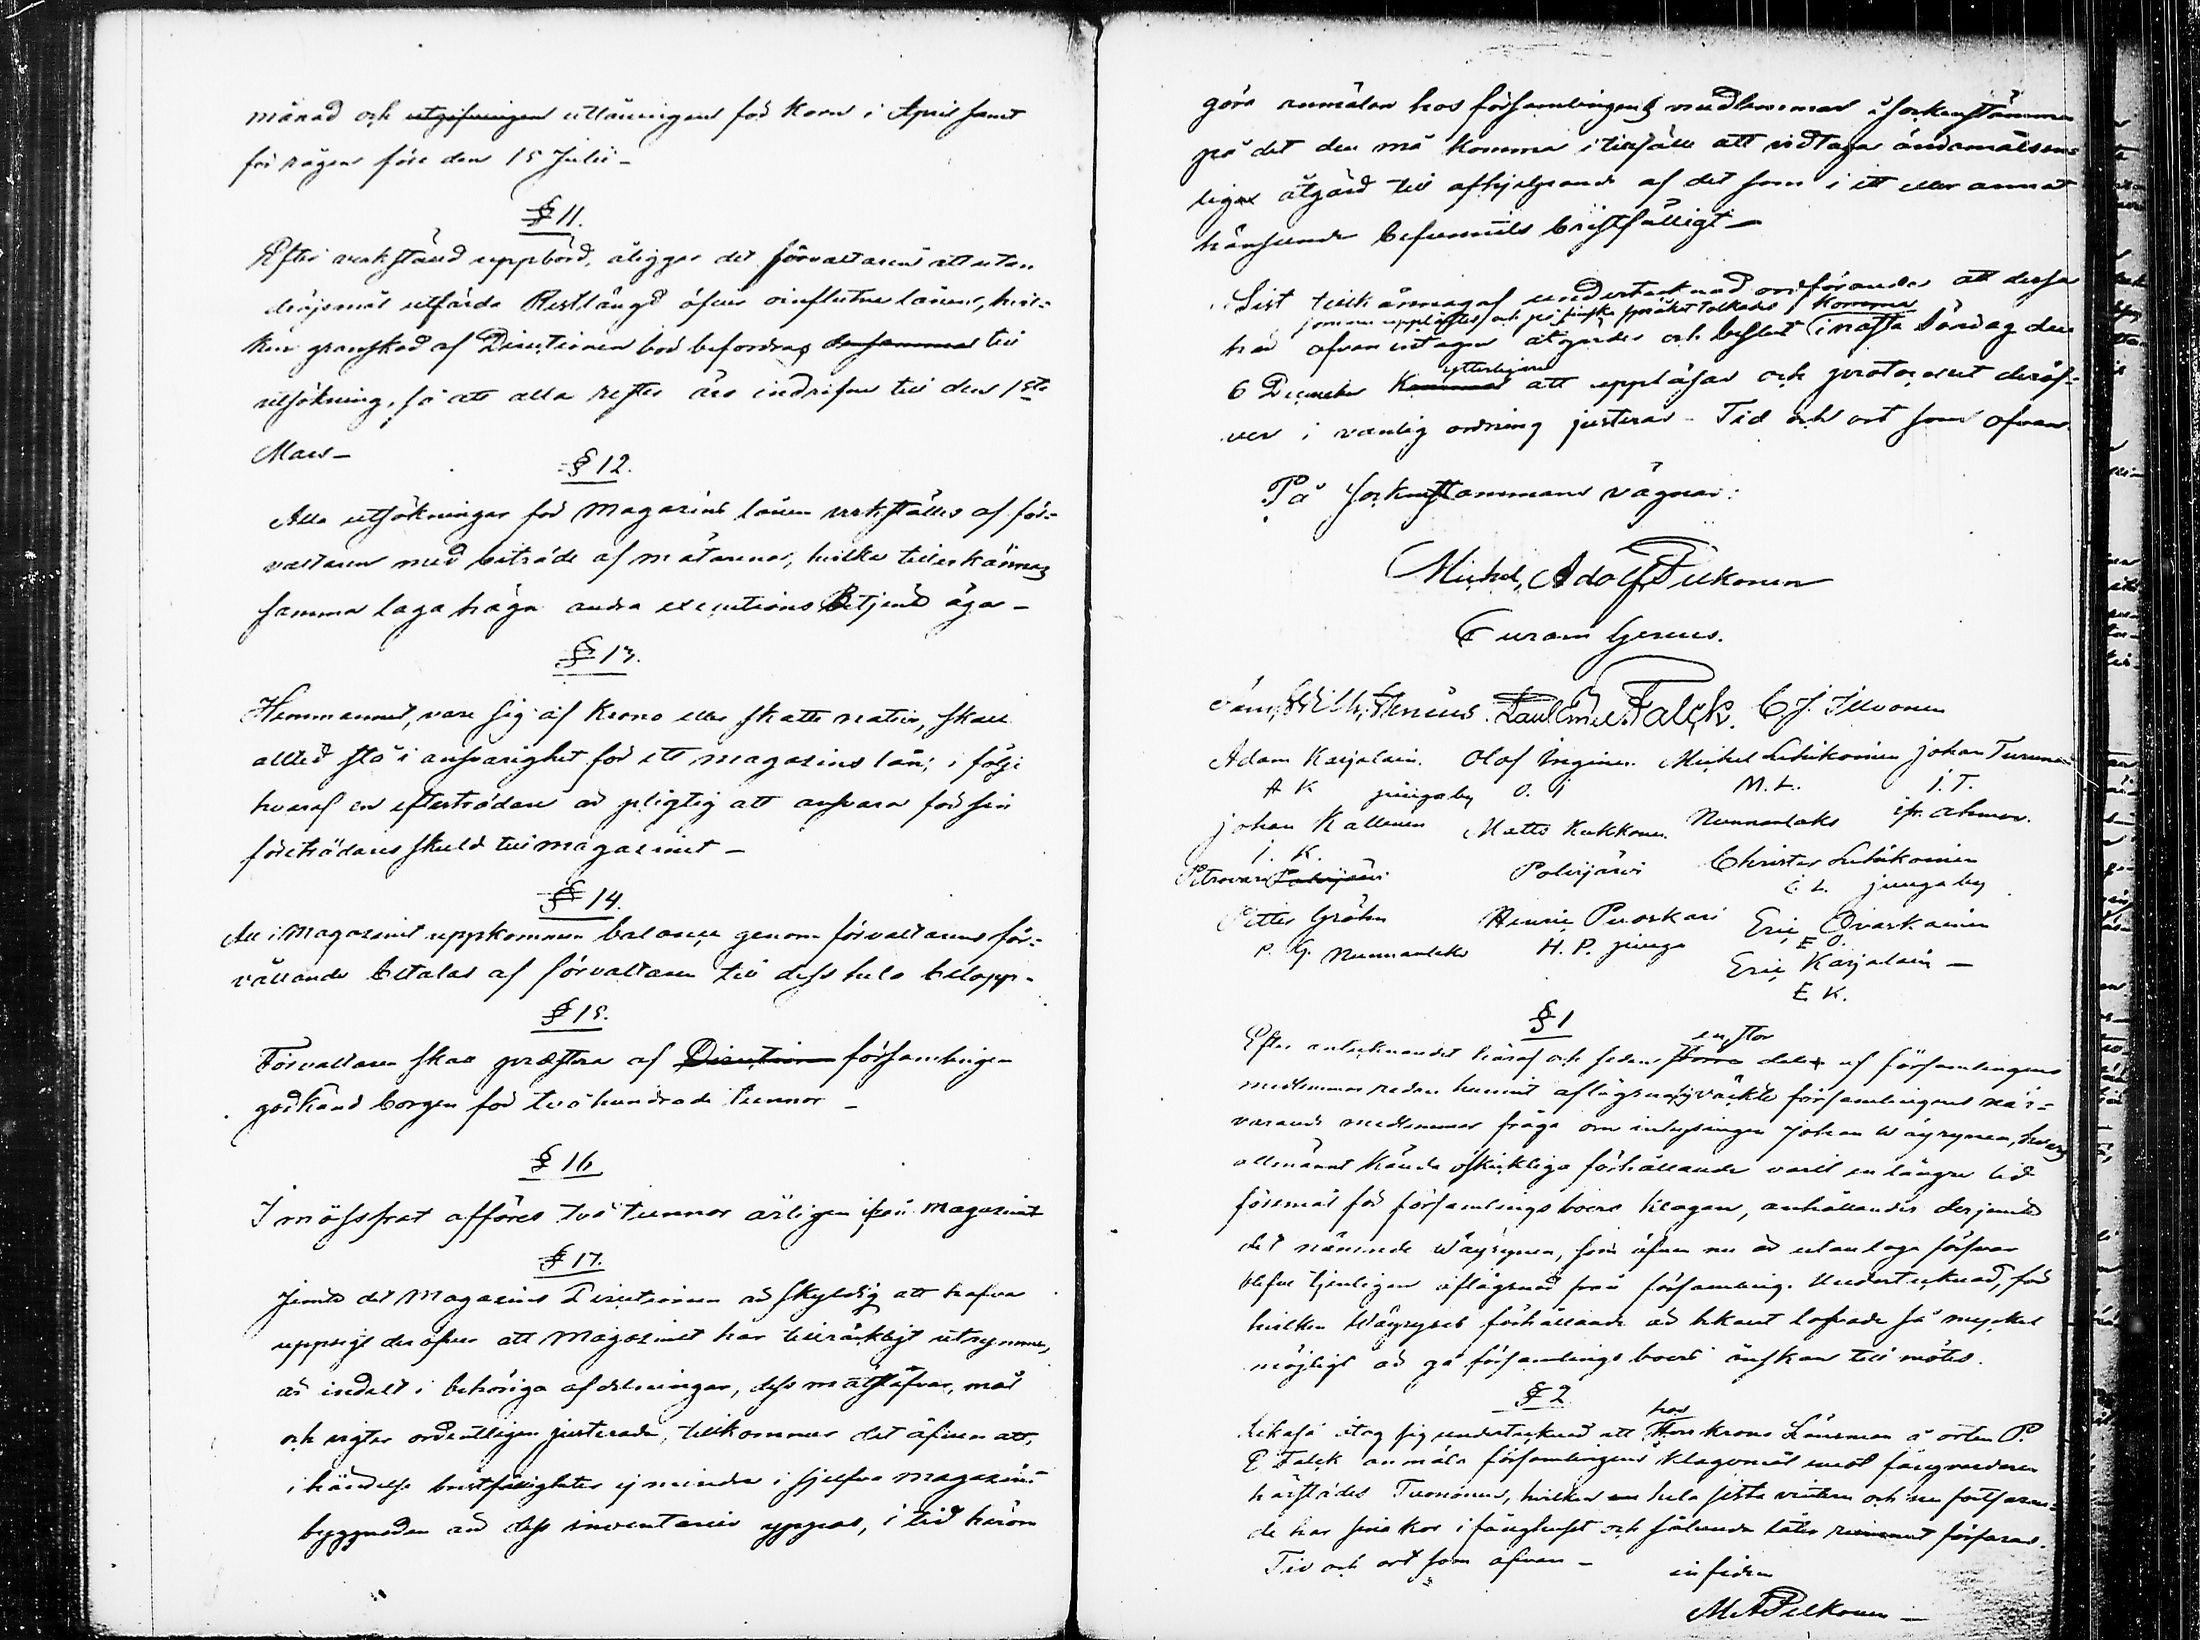 månad och utgifningen utlåningen för korn i April samt
för rågen före den 15 Julii –
§ 11.
Efter verkstäld uppbörd, åligger det förvaltaren att utan
dröjsmål utfärda Restlängd öfver oinflutne lånen, hvil-
ken granskad af Directionen bör befordras densamma till
utsökning, så att alla rester äro indrifne till den 1sta
Mars –
§ 12.
Alla utsökningar för Magasins lånen verkställes af för-
valtaren med biträde af mätarena, hvilka tillerkännas
samma laga hägn andra executions Betjente äga –
§ 13.
Hemmanet, vare sig af Krono eller skatte natur, skall
alltid stå i ansvarighet för ett magasins lån; i följe
hvaraf en efterträdare är pligtig att ansvara för sin
företrädares skuld till magasinet –
§ 14.
All i Magasinet uppkommen balance genom förvaltarens för-
vållande betalas af förvaltaren till dess hela belopp –
§ 15.
Förvaltaren skall præstera af Direction församlingen
godkänd borgen för två hundrade tunnor –
§ 16
I mössfrat afföres två tunnor årligen ifrån magasinet
§ 17.
Jemte det Magasins Directionen är skyldig att hafva
uppsigt deröfver att Magasinet har tillräckligt utrymme,
är indelt i behöriga afdelningar, dess mätstäfvar, mål
och vigter ordentligen justerade, tillkommer det äfven att,
i händelse bristfälligheter ej mindre i sjelfva magasins
byggnaden än dess inventarier yppas, i tid härom
göra anmälan hos församlingens medlemmar å sockenstämma
på det den må komma i tillfälle att vidtaga ändamålsen-
liga åtgärd till afhjelpande af det som i ett eller annat
hänseende befunnits bristfälligt –
Sist tillkännagaf undertecknad ordförande att dessa
somm upplästes och på finska språket tolkades komma
här ofvan intagne åtgärder och beslut i nästa söndag den
ytterligare
6 December Kommer att uppläsas och protocollet deröf-
ver i vanlig ordning justeras – Tid och ort som ofvan
På Sockenstämmans vägnar:
Michel Adolf Pelkonen
Curam Gerens.
Paul Emil Falck. C J Ilvonen
Adam Karjalain. Olof Inginen. Michel Lehikoinen Johan Turunen
A K junga by O. I M. L. J. T.
Johan Kallunen Matts Kukkonen Nunnanlaks
J. K.
Petrovara Polvijärvi Polvijärvi Christer Lehikoinen
C. L. junga by
Petter Gröhn Henric Puoskari Eric Ovaskainen
P. G. Nunnanlaks H. P. junga E O.
Eric Karjalain –
E K.
§ 1
en stor
Efter antecknandet häraf och sedan större delen af församlingens
medlemmar redan hunnit aflägsna sig väckte församlingens när-
varande medlemmar fråga om inhysingen Johan Wäyrynen, hvars
allmänt kända oskickliga förhållande varit en längre tid
föremål för församlingsboers klagan, anhållandes derjemte
det nämnde Wäyrynen, som äfven nu är utan laga försvar
blefve tjenligen aflägsnad från församling. Undertecknad, för
hvilken Wäyrynens förhållande är bekant lofvade så mycket
möjligt är gå församlings boers önskan till mötes.
§ 2
hos
Likaså åtog sig undertecknad att Hos Krono Länsman å orten P.
E Falck anmäla församlingens klagomål emot fångvaktaren
härstädes Turunen, hvilken en hela sista vintern och nu fortfaran-
de har sina kor i fånghuset och således låter rummet förfaras.
Tid och ort som ofvan –
in fidem
M A Pelkonen –